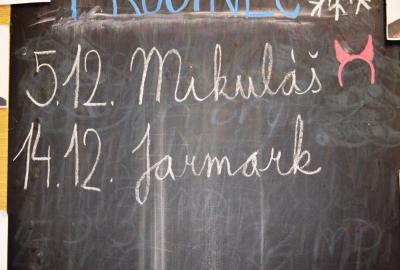 PROSINEC
5.12. Mikuláš
14.12. Jarmark